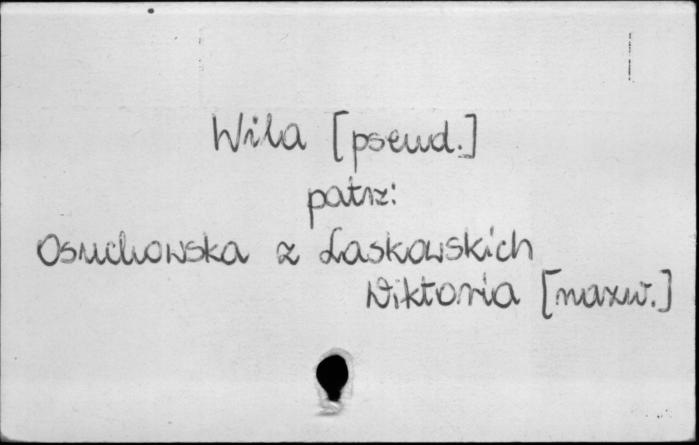 Wila [pseud.]
patrz:
Osuchowska z Laskowskich
Wiktoria [nazw.]